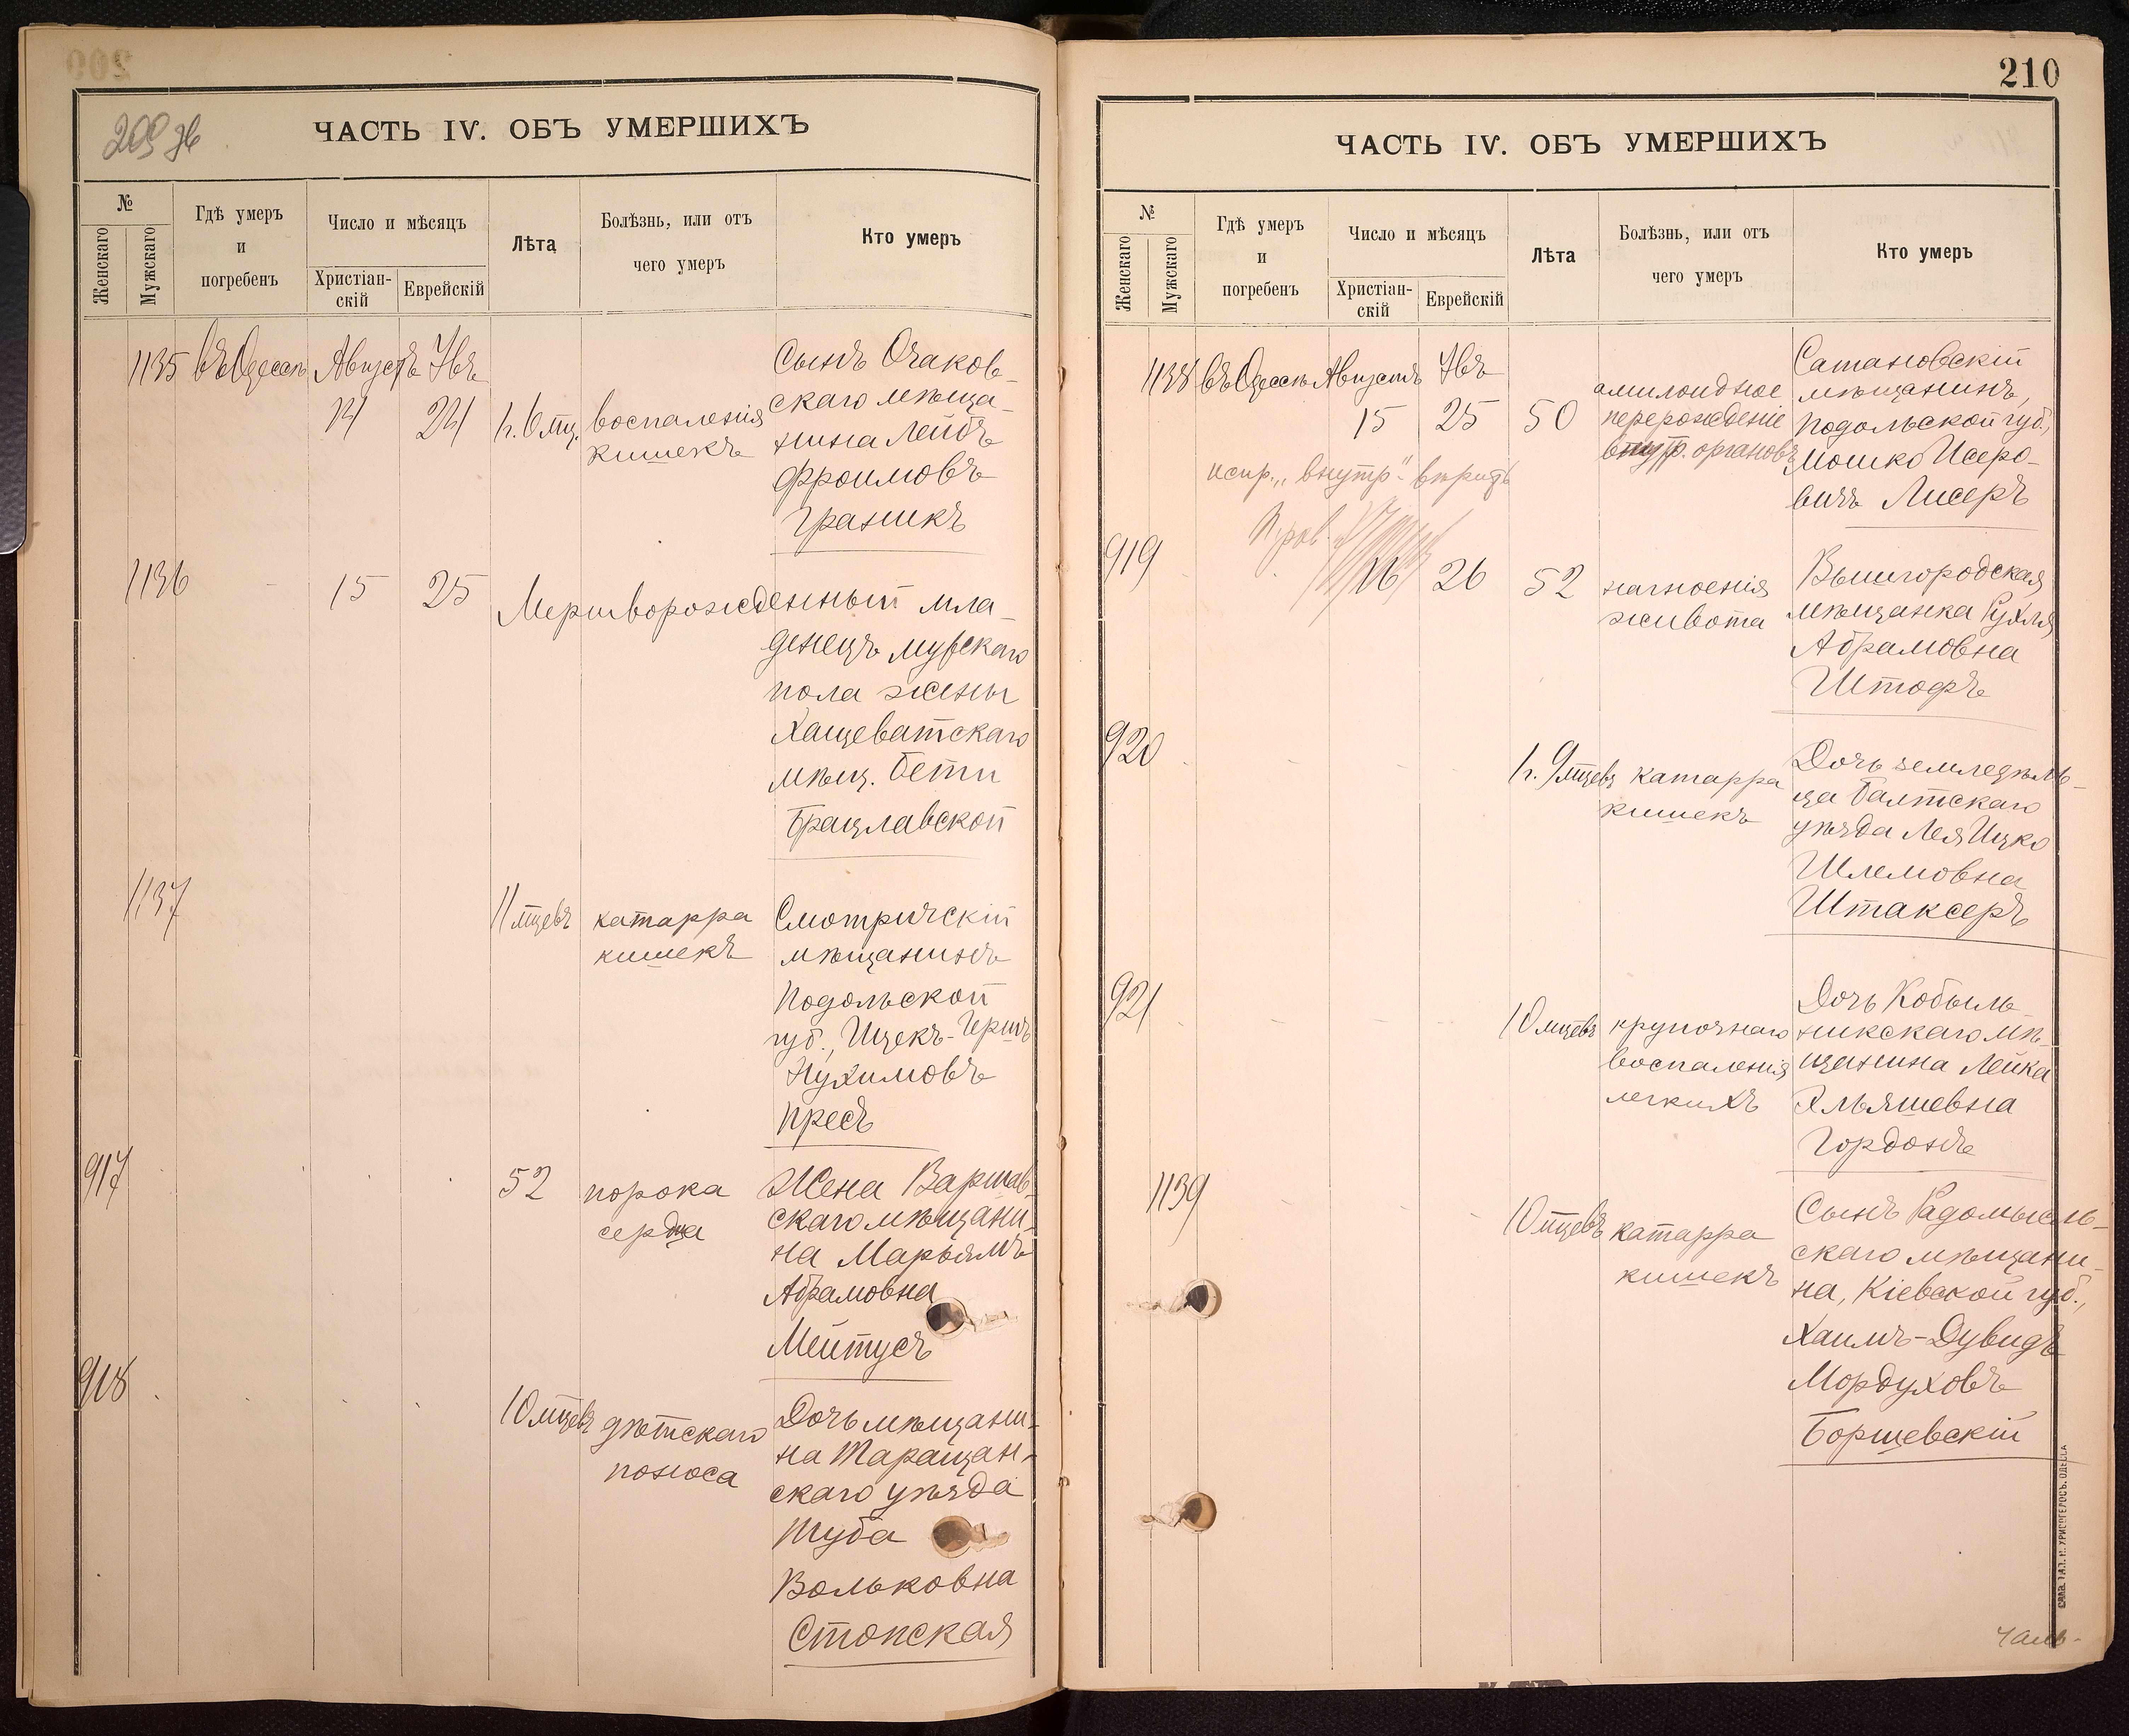 209 зв
ЧАСТЬ IV. ОБЪ УМЕРШИХЪ
№
Женскаго
Мужскаго
Гдѣ умеръ
и
погребенъ
Число и мѣсяцъ
Христіан-
скій
Еврейскій
Лѣта
Болѣзнь, или отъ
чего умеръ
Кто умеръ
1135 въ Одессѣ Августъ Увъ
14 24 1 г. 6 мц. воспаленія
кишекъ
Сынъ Очаков-
скаго мѣща-
нина Лейбъ
Фроимовъ
Граникъ
1136 15 25 Мертворожденный мла-
денецъ мужскаго
пола жены
Хащеватскаго
мѣщ. Бети
Брацлавской
1137 11 мцевъ катарра
кишекъ
Смотричскій
мѣщанинъ
Подольской
губ., Ицекъ-Гершъ
Нухимовъ
Пресъ
917 52 порока
сердца
Жена Варшав-
скаго мѣщани-
на Марьямъ
Абрамовна
Мейтусъ
918 10 мцевъ дѣтскаго
поноса
Дочь мѣщани-
на Таращан-
скаго уѣзда
Туба
Вольковна
Стопская
210
ЧАСТЬ IV. ОБЪ УМЕРШИХЪ
№
Женскаго
Мужскаго
Гдѣ умеръ
и
погребенъ
Число и мѣсяцъ
Христіан-
скій
Еврейскій
Лѣта
Болѣзнь, или отъ
чего умеръ
Кто умеръ
1138 въ Одессѣ Августъ Увъ
15 25 50 амилоидное
перерожденіе
внутр. органовъ
Сатановскій
мѣщанинъ,
Подольской губ.,
Мошко Исеро-
вичъ Лисеръ
испр. „внутр." вѣрить
919 16 26 52 нагноенія
живота
Вышгородская
мѣщанка Рухля
Абрамовна
Штофъ
920 1 г. 9 мцевъ катарра
кишекъ
Дочь земледѣль-
ца Балтскаго
уѣзда Лея Ицко
Шлемовна
Штаксеръ
921 10 мцевъ крупознаго
воспаленія
легкихъ
Дочь Кобыль-
никскаго мѣ-
щанина Лейка
Эльяшевна
Гордонъ
1139 10 мцевъ катарра
кишекъ
Сынъ Радомысль-
скаго мѣщани-
на, Кіевской губ.,
Хаимъ-Дувидъ
Мордуховъ
Борщевскій